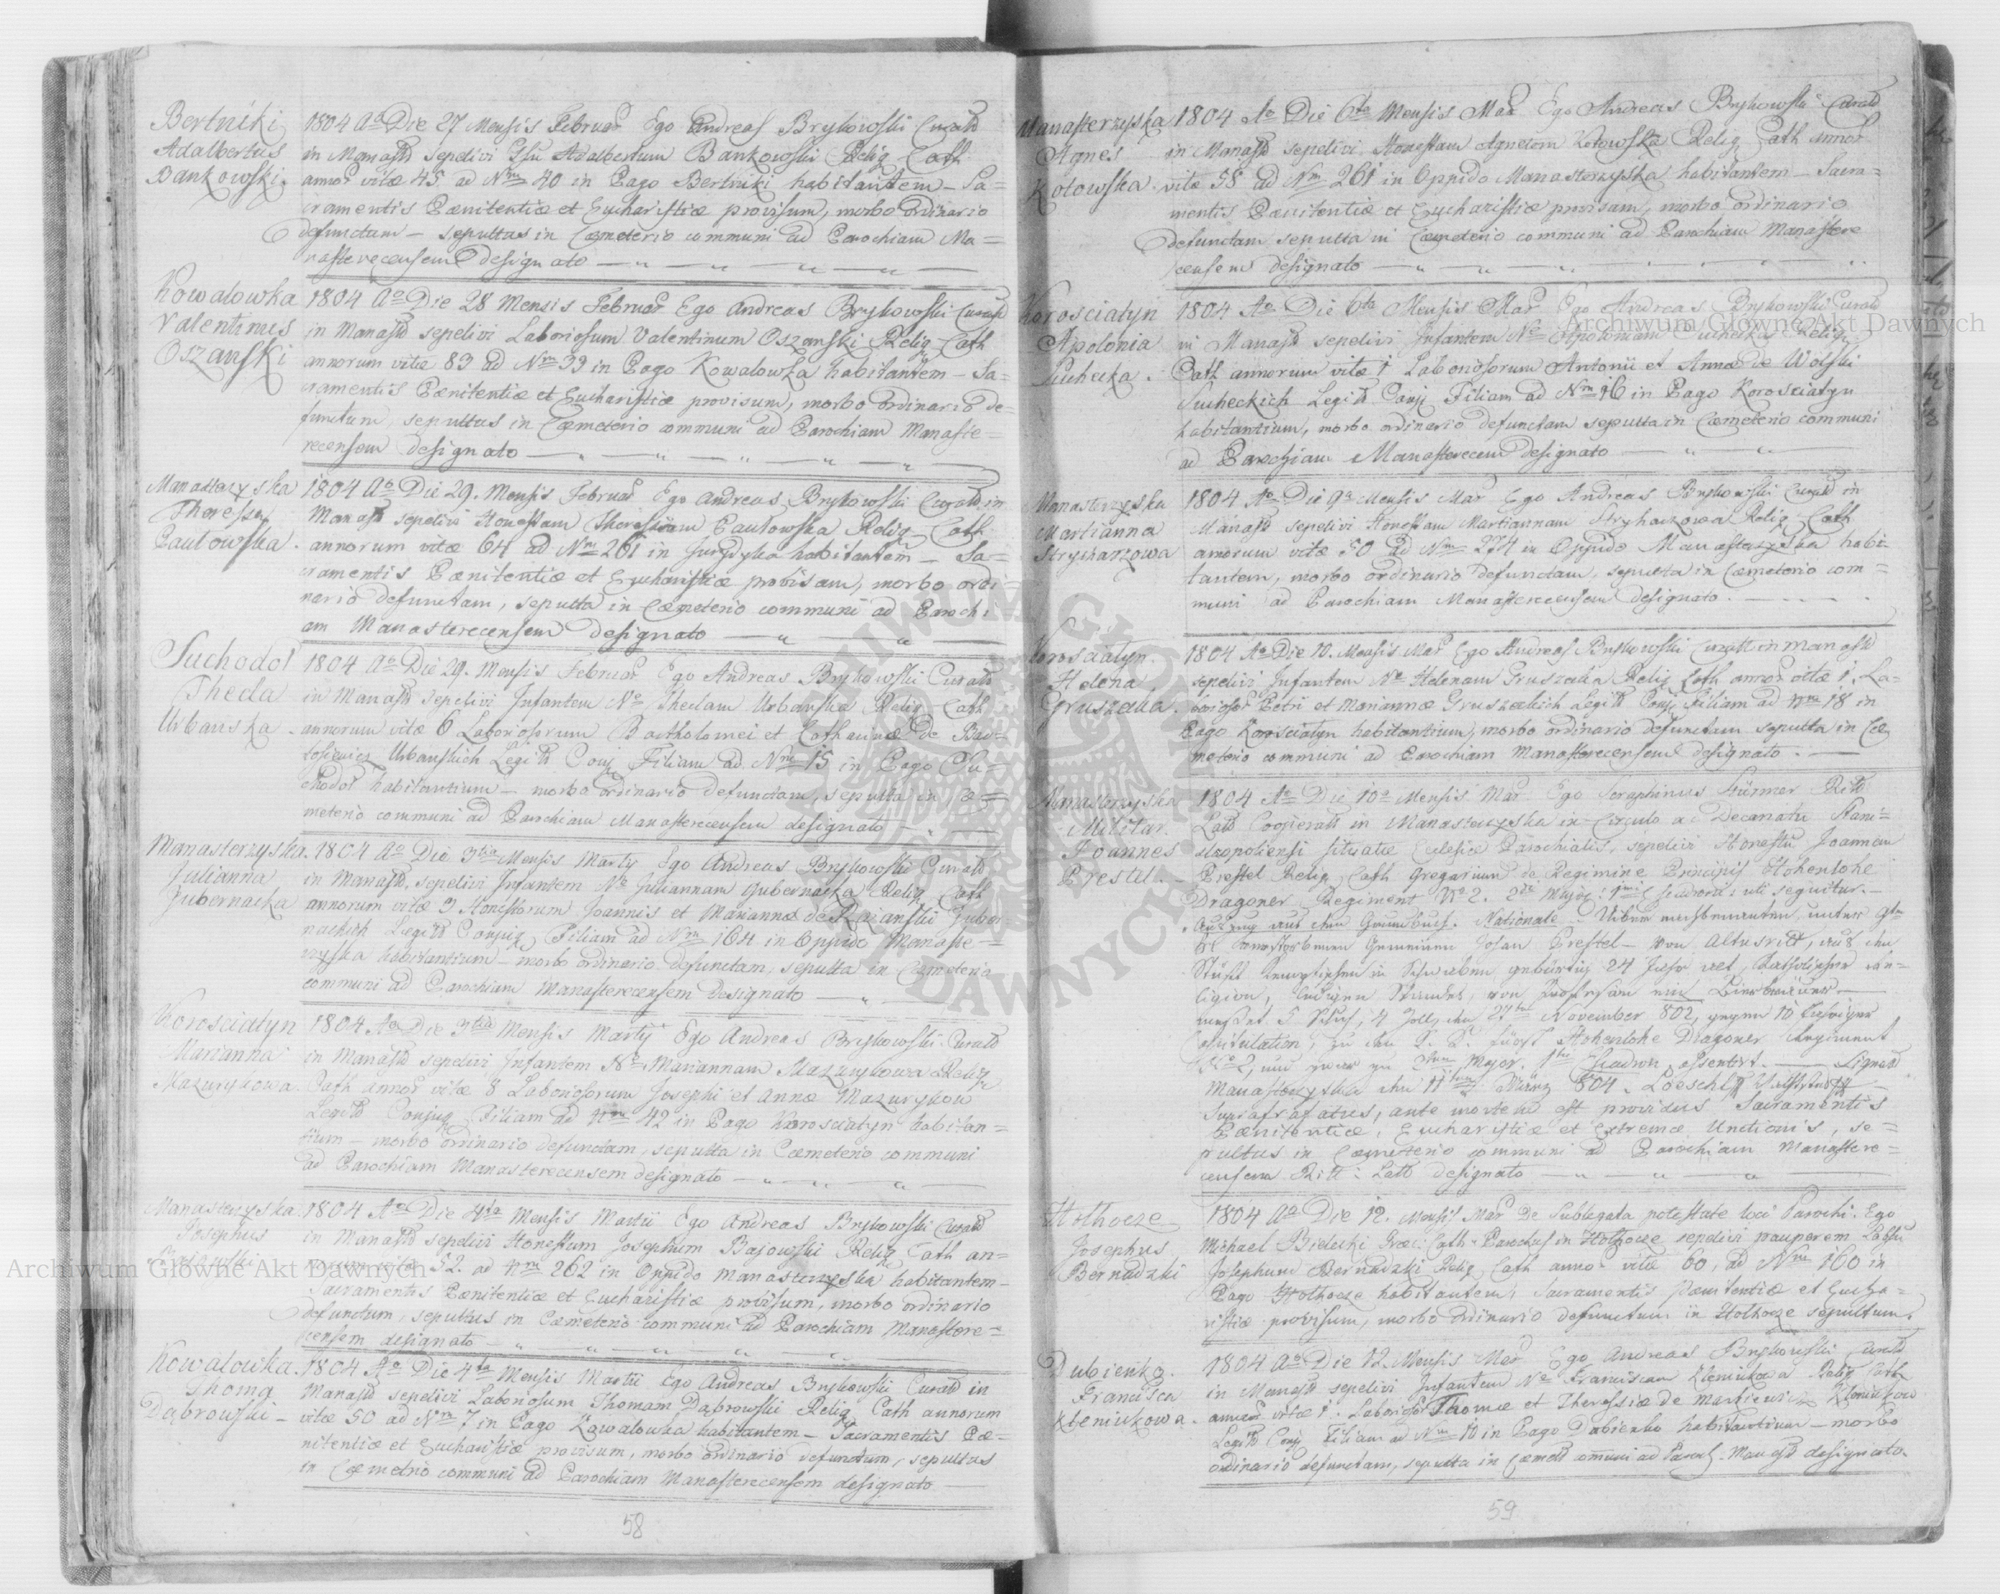 Bertniki
Adalbertus
Bankowski
1804 Ao Die 27 Mensis Februar Ego Andreas Brykowski Curatt
in Manast sepelivi Adalbertum Bankowski Relig Cath
annor vitæ 45 ad Nrm 40 in Pago Bertniki habitantem – Sa-
cramentis Pænitentiæ et Eucharistiæ provisum, morbo ordinario
defunctum – sepultus in Cæmeterio communi ad Parochiam Ma=
nasterecensem designato
Kowalowka
Valentinus
Oszanski
1804 Ao Die 28 Mensis Februar Ego Andreas Brykowski Curatt
in Manast sepelivi Laboriosum Valentinum Oszanski Relig Cath
annorum vitæ 83 ad Nrm 33 in Pago Kowalowka habitantem – Sa-
cramentis Pænitentiæ et Eucharistiæ provisum, morbo ordinario de-
functum, sepultus in Cæmeterio communi ad Parochiam Manaste=
recensem designato
Manasterzyska
Theressa
Paulowska
1804 Ao Die 29. Mensis Februar Ego Andreas Brykowski Curatt in
Manast sepelivi Honestam Theressam Paulowska Relig Cath
annorum vitæ 64 ad Nrm 261 in Jurydyka habitantem – Sa-
cramentis Pænitentiæ et Eucharistiæ provisam, morbo ordi-
nario defunctam, sepulta in Cæmeterio communi ad Parochi
am Manasterecensem designato
Suchodol
Thecla
Urbanska
1804 Ao Die 29. Mensis Februar Ego Andreas Brykowski Curatt
in Manast sepelivi Infantem Ne Theclam Urbanska Relig Cath
annorum vitæ 6 Laboriosorum Bartholomei et Catharinæ de Bar-
tosiewicz Urbanskich Legitt Conj Filiam ad Nrm 15 in Pago Su-
chodol habitantium – morbo ordinario defunctam, sepulta in Cæ=
meterio communi ad Parochiam Manasterecensem designato
Manasterzyska
Julianna
Gubernacka
1804 Ao Die 3tia Mensis Martij Ego Andreas Brykowski Curatt
in Manast, sepelivi Infantem Ne Juliannam Gubernacka Relig Cath
annorum vitæ 3 Honestorum Joannis et Mariannæ de Guber-
nackich Legitt Conjug Filiam ad Nrm 164 in Oppido Manaste-
rzyska habitantium – morbo ordinario defunctam, sepulta in Cæmeterio
communi ad Parochiam Manasterecensem Designato
Korosciatyn
Marianna
Mazurykowa
1804 Ao Die 3tia Mensis Martij Ego Andreas Brykowski Curatt
in Manast sepelivi Infantem Ne Mariannam Mazurykowa Relig
Cath annor vitæ 8 Laboriosorum Josephi et Annæ Mazurykow
Legitt Conjug Filiam ad Nrm 42 in Pago Korosciatyn habitan=
tium – morbo ordinario defunctam, sepulta in Cæmeterio communi
ad Parochiam Manasterecensem designato
Manasterzyska
Josephus
Bajowski
1804 Ao Die 4ta Mensis Martii Ego Andreas Brykowski Curatt
in Manast sepelivi Honestum Josephum Bajowski Relig Cath an-
norum vitæ 52. ad Nrm 262 in Oppido Manasterzyska habitantem –
Sacramentis Pænitentiæ et Eucharistiæ provisum, morbo ordinario
defunctum, sepultus in Cæmeterio communi ad Parochiam Manastere=
censem designato
Kowalowka
Thoma
Dąbrowski
1804 Ao Die 4ta Mensis Martii Ego Andreas Brykowski Curatt in
Manast sepelivi Laboriosum Thomam Dąbrowski Relig Cath annorum
vitæ 50 ad Nrm 7 in Pago Kowalowka habitantem – Sacramentis Pæ-
nitentiæ et Eucharistiæ provisum, morbo ordinario defunctum, sepultus
in Cæmetrio communi ad Parochiam Manasterecensem designato
58
Manasterzyska
Agnes
Kotowska
1804 Ao Die 6ta Mensis Mar Ego Andreas Brykowski Curatt
in Manast sepelivi Honestam Agnetem Kotowska Relig Cath annor
vitæ 58 ad Nrm 261 in Oppido Manasterzyska habitantem – Sacra-
mentis Pænitentiæ et Eucharistiæ provisam, morbo ordinario
defunctam sepulta in Cæmeterio communi ad Parochiam Manastere
censem designato
Korosciatyn
Apolonia
Suchecka
1804 Ao Die 6ta Mensis Mar Ego Andreas Brykowski Curatt
in Manast sepelivi Infantem Ne Apoloniam Suchecka Relig
Cath annorum vitæ 1 Laboriosorum Antonii et Annæ de Wolski
Sucheckich Legitt Conj Filiam ad Nrm 46 in Pago Korosciatyn
habitantium, morbo ordinario defunctam sepulta in Cæmeterio communi
ad Parochiam Manasterecem designato
Manasterzyska
Martianna
Strycharzowa
1804 Ao Die 9a Mensis Mar Ego Andreas Brykowski Curatt in
Manast sepelivi Honestam Martiannam Relig Cath
annorum vitæ 50 ad Nrm 274 in Oppido Manasterzyska habi-
tantem, morbo ordinario defunctam, sepulta in Cæmeterio com-
muni ad Parochiam Manasterecensem designato
Korosciatyn
Helena
Gruszecka
1804 Ao Die 10. Mensis Mar Ego Andreas Brykowski Curatt in Manast
sepelivi Infantem Ne Helenam Gruszecka Relig Cath annor vitæ 1. La-
borios Petri et Mariannæ Gruszeckich Legitt Conj Filiam ad Nrm 18 in
Pago Korosciatyn habitantium, morbo ordinario defunctam sepulta in Cæ
meterio communi ad Parochiam Manasterecensem designato
Manasterzyska
Militar
Joannes
Prestel
1804 Ao Die 10a Mensis Mar Ego Seraphinus Stürmer Ritt
Latt Cooperatt in Manasterzyska in Circulo ac Decanatu Stani-
slaopoliensi situatæ Ecclesiæ Parochialis, sepelivi Honestu Joannem
Prestel Relig Cath Gregarium de Regimine Principis Hohenlohe
Dragoner Regiment No 2. uti sequitur. –
Auszug aus dem Grundbuch. Nationale
Gemeinen Johan Prestel – von Altusritt, aus dem
in Schwaben gebürtig 24 Jahr alt, Katholischer Re-
ligion, ledigen Standes, von Profession ein Bierbrauer
5 Schuh, 4 Zoll, den November 802, gegen 10 Jähriger
Capitulation, zu dem K. K. Fürst Hohenlohe Dragoner Regiment
No 2, Major. 1te assentirt. – Signat
Manasterzyska den 11ten März 804.
Suprafatus, ante mortem est providus Sacramentis
Pænitentiæ, Eucharistiæ et Extremæ Unctionis, se=
pultus in Cæmeterio communi ad Parochiam Manastere=
censem Ritt: Latt designato
Holhocze
Josephus
Bernadzki
1804 Ao Die 12. Mensis Mar De Sublegata potestate loci Parochi. Ego
Michael Bielecki Græc: Cath Parochus in Holhocze sepelivi pauperem
Josephum Bernadzki Relig Cath annor vitæ 60, ad Nrm 160 in
Pago Holhocze habitantem, Sacramentis Pænitentiæ et Eucha-
ristiæ provisum, morbo ordinario defunctum in Holhocze sepultum.
Dubienko
Francisca
Kleniukowa
1804 Ao Die 12 Mensis Mar Ego Andreas Brykowski Curatt
in Manast sepelivi Infantem Ne Franciscam Kleniukowa Relig Cath
annor vitæ 1. Laborios Thomæ et Theressiæ de Kleniukow
Legitt Conj Filiam ad Nrm 10 in Pago Dubienko habitantium – morbo
ordinario defunctam, sepulta in Cæmett communi ad Paroch. Manast designato.
59
Archiwum Główne Akt Dawnych
Archiwum Główne Akt Dawnych
ARCHIWUM GŁÓWNE AKT DAWNYCH